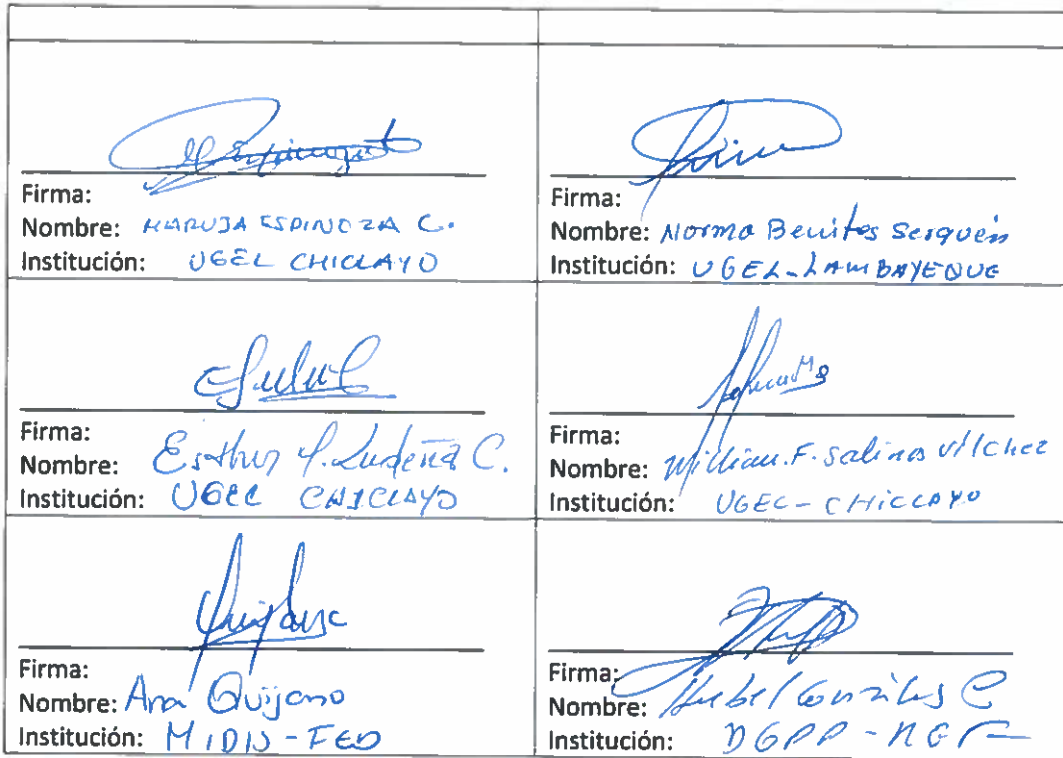 Firma:
Nombre: MARUJA ESPINOZA C.
Institución: UGEL CHICLAYO
Firma:
Nombre: Norma Benites Serquén
Institución: UGEL-LAMBAYEQUE
Firma:
Nombre: Esther Y. Ludeña C.
Institución: UGEL CHICLAYO
Firma:
Nombre: William.F. Salinas Vilchez
Institución: UGEL-CHICLAYO
Firma:
Nombre: Ana Quijano
Institución: MIDIS-FED
Firma:
Nombre: Gonzáles C
Institución: DGPP-